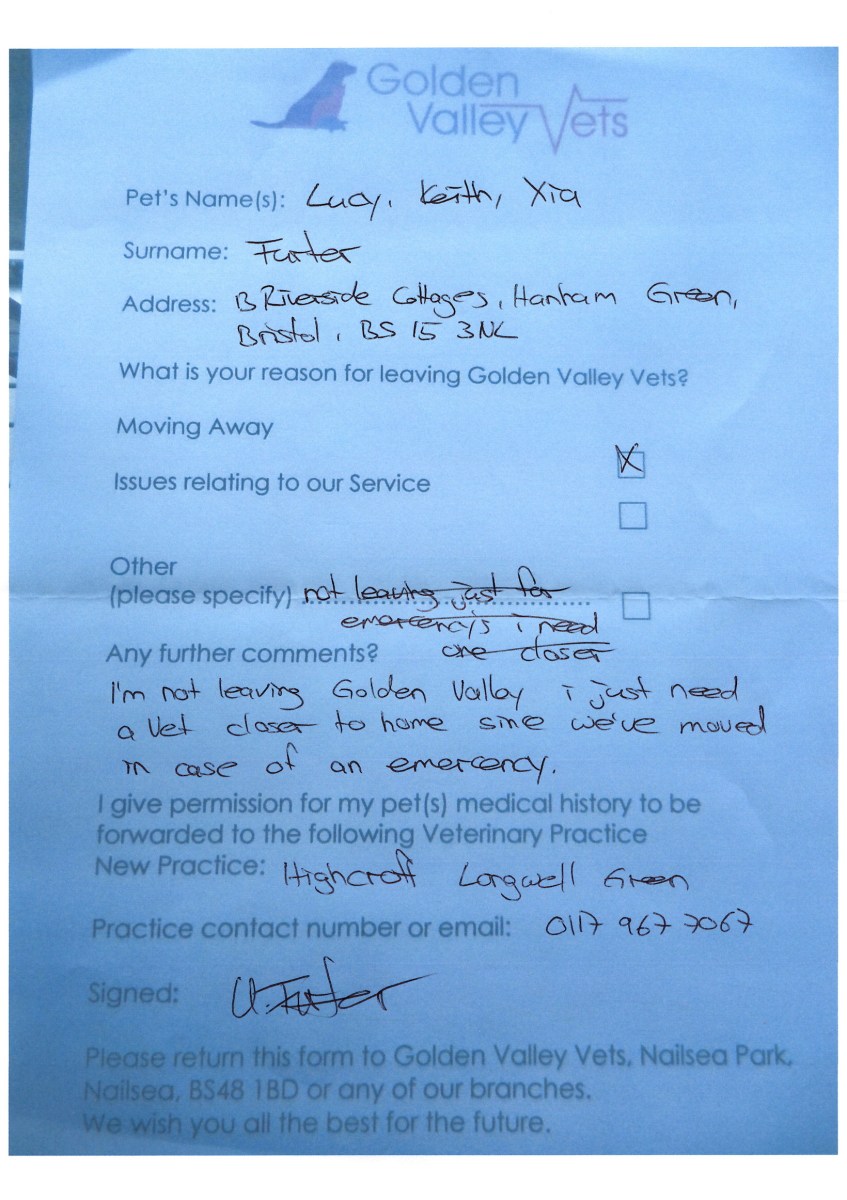 Golden
Valley Vets
Pet's Name(s): Lucy, Keith, Xia
Surname: Furter
Address: B Riverside Cottages, Hanham Green,
Bristol, BS 15 3NL
What is your reason for leaving Golden Valley Vets?
Moving Away
X
Issues relating to our Service
Other
(please specify) not leaving just for
emercency's i need
one closer
Any further comments?
I'm not leaving Golden Valley i just need
a vet closer to home sine we've moved
in case of an emercency.
I give permission for my pet(s) medical history to be
forwarded to the following Veterinary Practice
New Practice: Highcroft Longwell Green
Practice contact number or email: 0117 967 7067
Signed: Furter
Please return this form to Golden Valley Vets, Nailsea Park,
Nailsea, BS48 1BD or any of our branches.
We wish you all the best for the future.